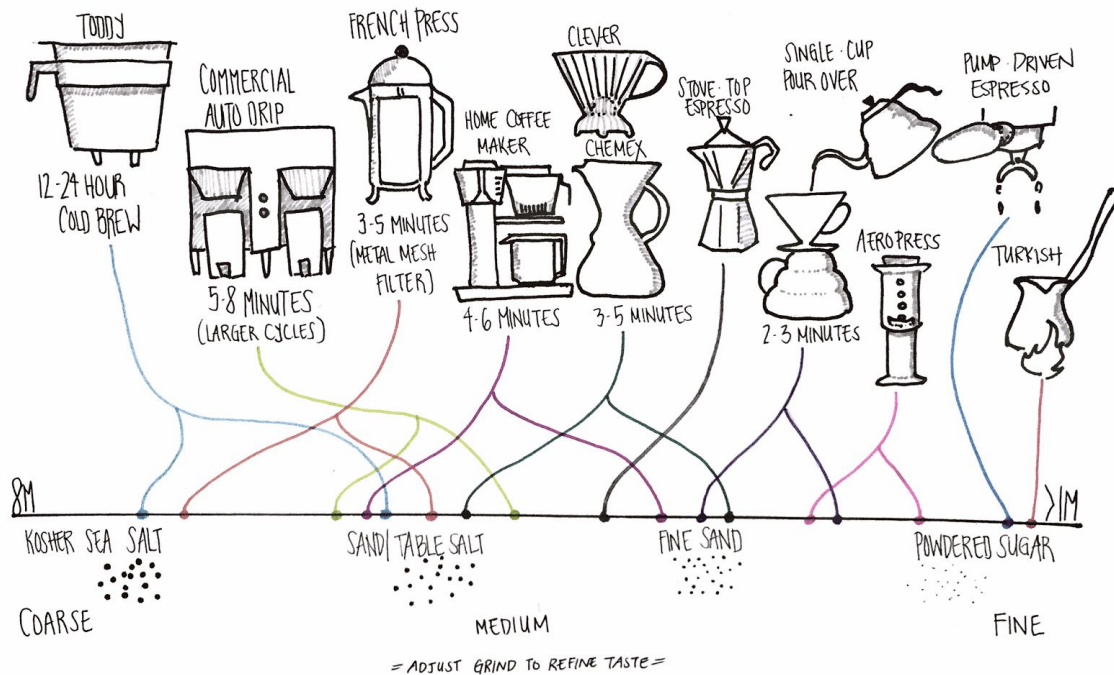 TODDY
12-24 HOUR
COLD BREW
COMMERCIAL
AUTO DRIP
5-8 MINUTES
(LARGER CYCLES)
FRENCH PRESS
3-5 MINUTES
(METAL MESH
FILTER)
HOME COFFEE
MAKER
4-6 MINUTES
CLEVER
CHEMEX
3-5 MINUTES
STOVE-TOP
ESPRESSO
SINGLE-CUP
POUR OVER
2-3 MINUTES
AEROPRESS
PUMP-DRIVEN
ESPRESSO
TURKISH
8M
>1M
KOSHER SEA SALT
SAND/TABLE SALT
FINE SAND
POWDERED SUGAR
COARSE
MEDIUM
FINE
= ADJUST GRIND TO REFINE TASTE =